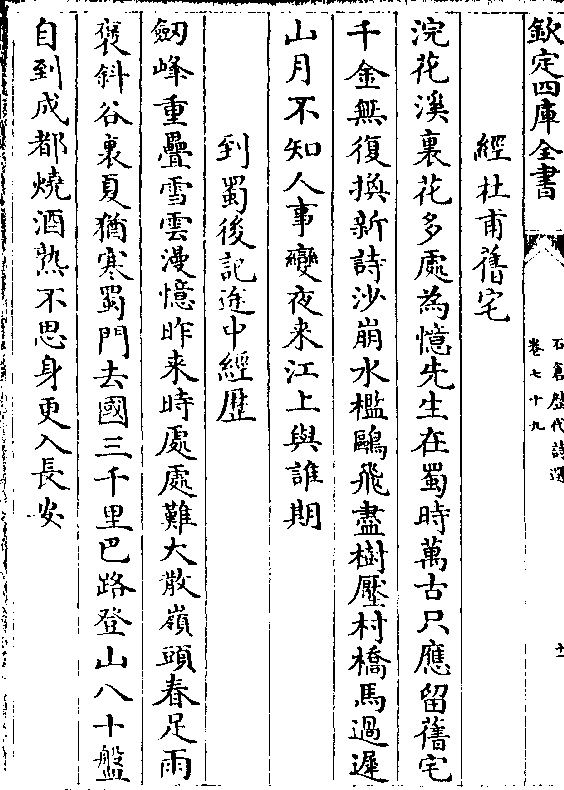 欽定四庫全書
石倉歷代詩選
卷七十九
十
經杜甫舊宅
浣花溪裏花多處為憶先生在蜀時萬古只應留舊宅
千金無復換新詩沙崩水檻鷗飛盡樹壓村橋馬過遲
山月不知人事變夜来江上與誰期
到蜀後記途中經歷
劒峰重疊雪雲漫憶昨来時處處難大散嶺頭春足雨
褒斜谷裏夏猶寒蜀門去國三千里巴路登山八十盤
自到成都燒酒熟不思身更入長安